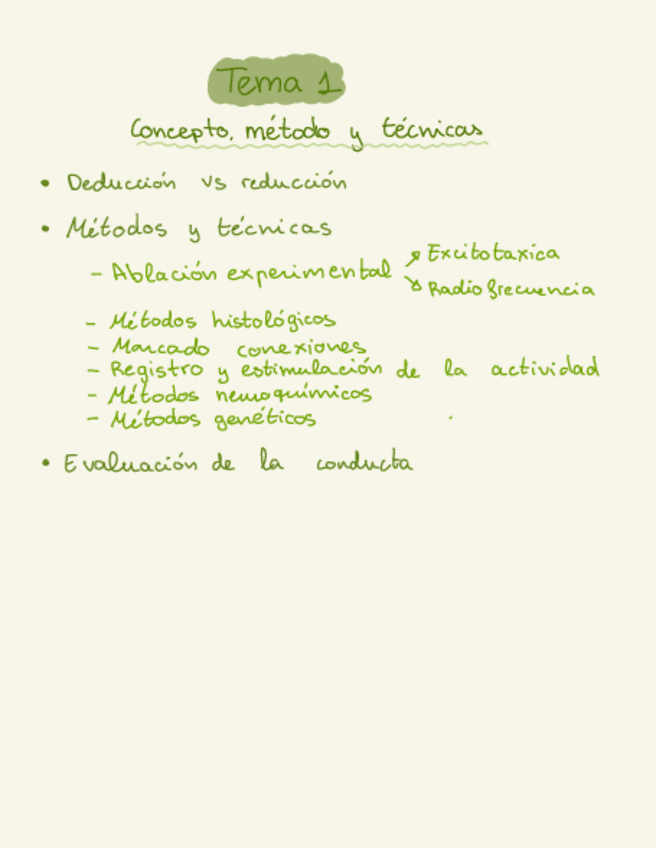 Tema 1
Concepto, método y técnicas
• Deducción vs reducción
• Métodos y técnicas
- Ablación experimental
↗ Excitotaxica
↘ Radiofrecuencia
- Métodos histológicos
- Marcado conexiones
- Registro y estimulación de la actividad
- Métodos neuroquímicos
- Métodos genéticos
• Evaluación de la conducta